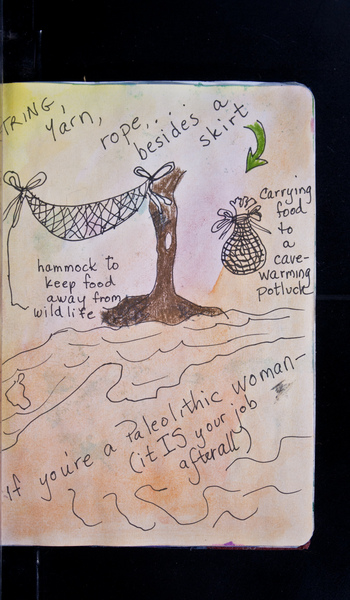 TRING,
Yarn,
rope,....
besides a
skirt
Carrying
food
to
a
cave-
warming
potluck
hammock to
keep food
away from
wild life
If you're a Paleolithic woman-
(it IS your job
afterall)